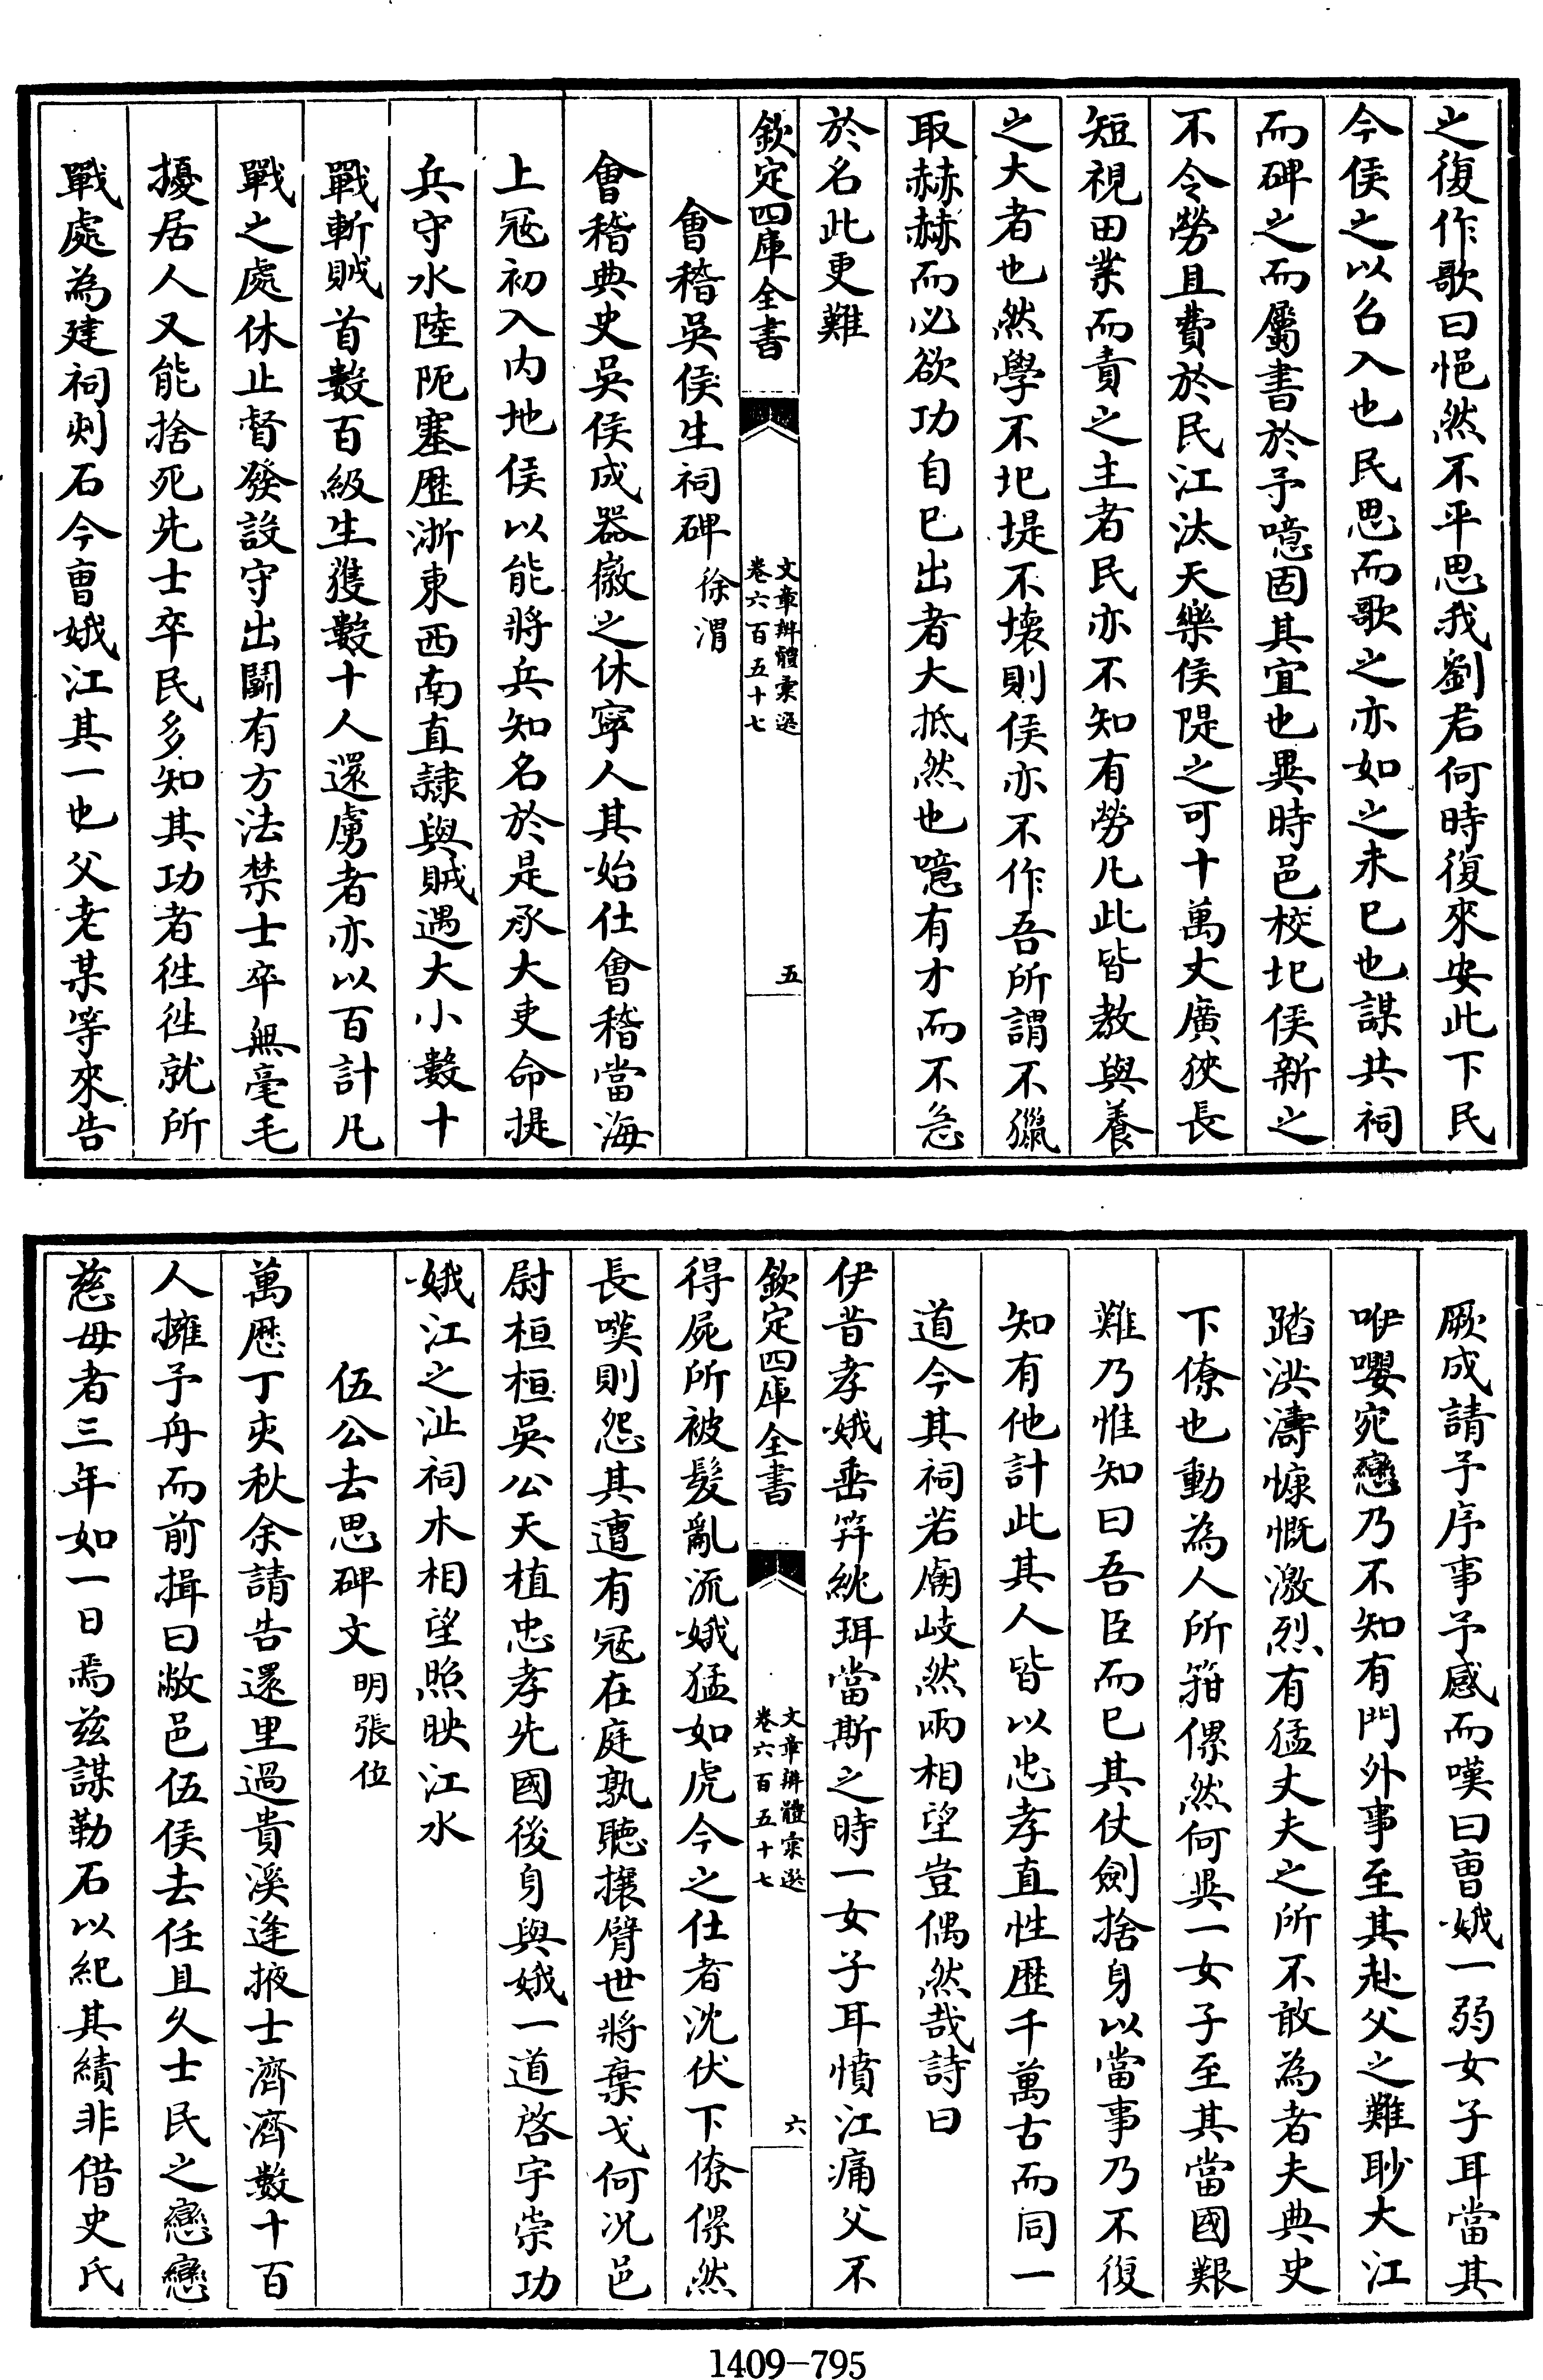 之復作歌曰悒然不平思我劉君何時復來安此下民
今侯之以召入也民思而歌之亦如之未已也謀共祠
而碑之而屬書於予噫固其宜也異時邑校圮侯新之
不令勞且費於民江汰天樂侯隄之可十萬丈廣狹長
短視田業而責之主者民亦不知有勞凡此皆教與養
之大者也然學不圯堤不壞則侯亦不作吾所謂不獵
取赫赫而必欲功自已出者大抵然也噫有才而不急
於名此更難
欽定四庫全書
文章辨體彙選
卷六百五十七
五
會稽吳侯生祠碑 徐渭
會稽典史吳侯成器徽之休寧人其始仕會稽當海
上冦初入内地侯以能將兵知名於是承大吏命提
兵守水陸阨塞歴浙東西南直隷與賊遇大小數十
戰斬賊首數百級生獲數十人還虜者亦以百計凡
戰之處休止督發設守出鬭有方法禁士卒無毫毛
擾居人又能捨死先士卒民多知其功者徃徃就所
戰處為建祠刿石今曹娥江其一也父老某等來告
厥成請予序事予感而嘆曰曹娥一弱女子耳當其
咿嚶宛戀乃不知有門外事至其赴父之難眇大江
踏洪濤慷慨激烈有猛丈夫之所不敢為者夫典史
下僚也動為人所箝傫然何異一女子至其當國艱
難乃惟知曰吾臣而已其仗劍捨身以當事乃不復
知有他計此其人皆以忠孝直性歴千萬古而同一
道今其祠若廟岐然兩相望豈偶然哉詩曰
伊昔孝娥垂筓紞珥當斯之時一女子耳憤江痛父不
得屍所被髮亂流娥猛如虎今之仕者沈伏下僚傫然
欽定四庫全書
文章辨體彙選
卷六百五十七
六
長嘆則怨其遭有冦在庭孰聽攘臂世將棄戈何况邑
尉桓桓吳公天植忠孝先國後身與娥一道啓宇崇功
娥江之沚祠木相望照映江水
伍公去思碑文 明張位
萬歴丁亥秋余請告還里過貴溪逢掖士濟濟數十百
人擁予舟而前揖曰敝邑伍侯去任且久士民之戀戀
慈母者三年如一日焉兹謀勒石以紀其績非借史氏
1409—795